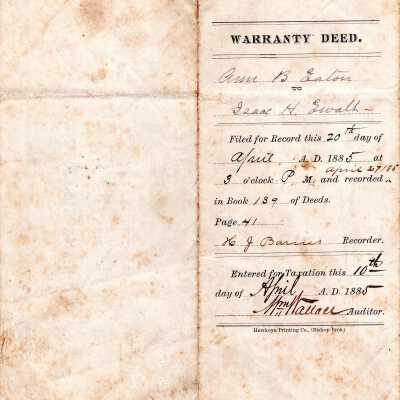 WARRANTY DEED.
Ann B Eaton
TO
Isaac H. Ewalt
Filed for Record this 20th day of
April A. D. 1885 at
3 o'clock P M. and recorded April 27/85
in Book 139 of Deeds.
Page 41
H J Barnes Recorder.
Entered for Taxation this 10th
day of April A. D. 1885
Wm Wallace Auditor.
Hawkeye Printing Co., (Bishop Bros.)